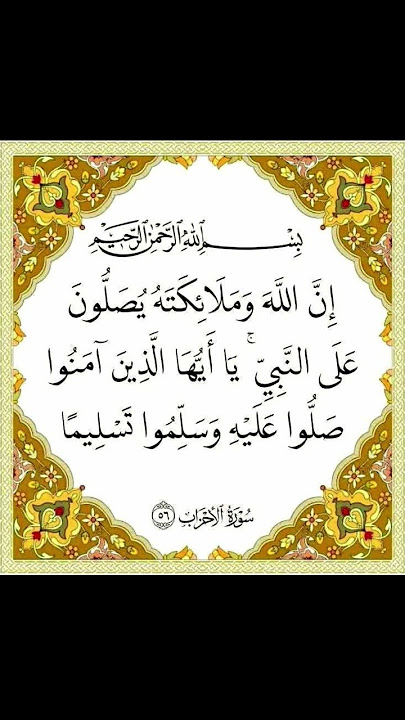 بِسْمِ اللَّهِ الرَّحْمَٰنِ الرَّحِيمِ
إِنَّ اللَّهَ وَمَلَائِكَتَهُ يُصَلُّونَ
عَلَى النَّبِيِّ ۚ يَا أَيُّهَا الَّذِينَ آمَنُوا
صَلُّوا عَلَيْهِ وَسَلِّمُوا تَسْلِيمًا
سُورَةُ الْأَحْزَابِ ٥٦